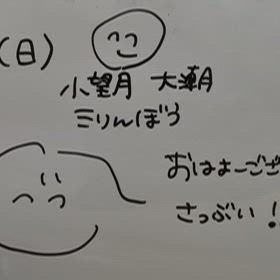 (日)
小望月 大潮
ミリんぼう
おはまーござ
さっぶい!